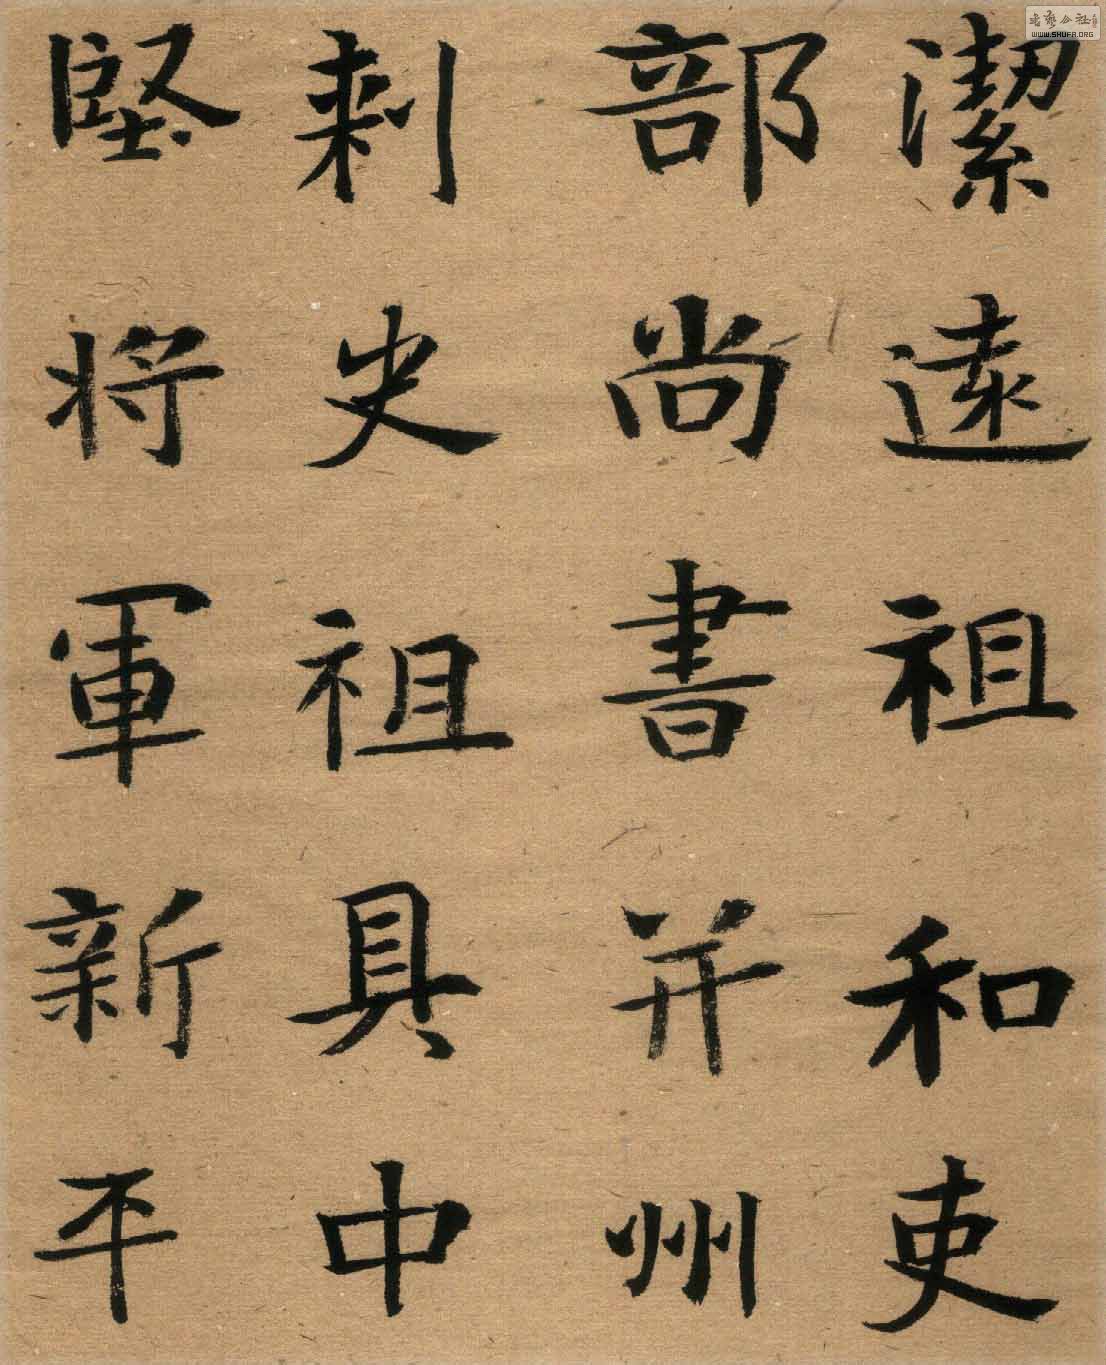 潔遠祖和吏
部尚書并州
刺史祖具中
堅將軍新平
書藝公社
WWW.SHUFA.ORG